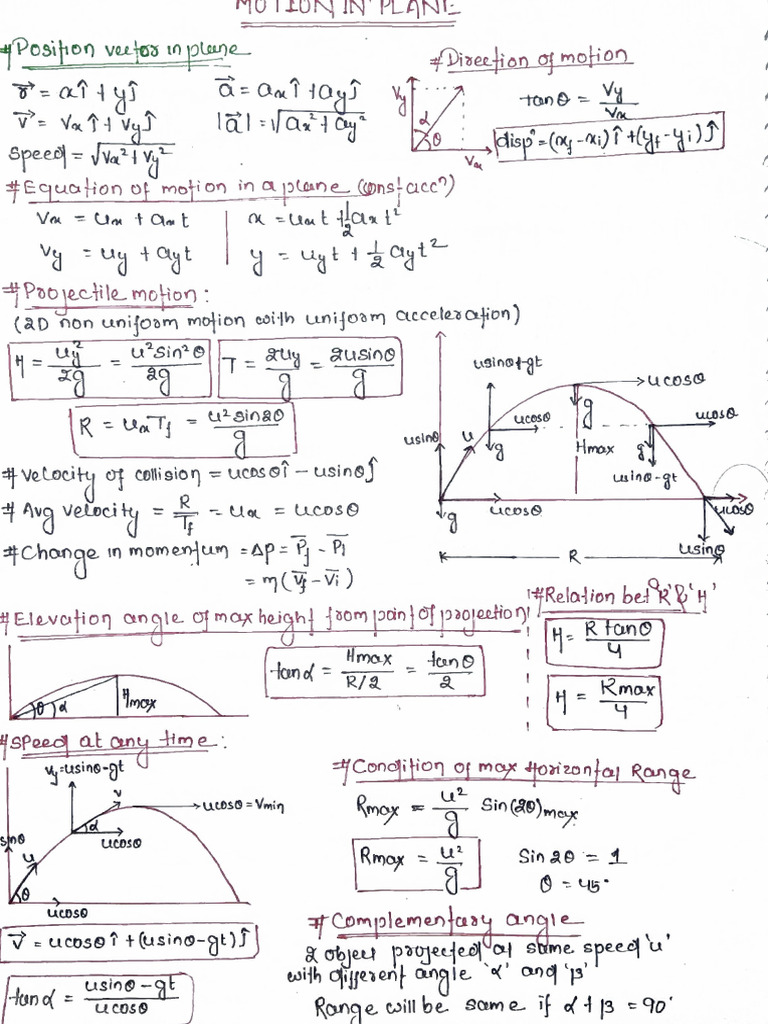 MOTION IN PLANE
# Position vector in plane
r⃗ = xî + yĵ
v⃗ = vxî + vyĵ
speed = √(vx² + vy²)
a⃗ = axî + ayĵ
|a⃗| = √(ax² + ay²)
# Direction of motion
vy
α
θ
vx
tanθ = vy/vx
dispⁿ = (xf - xi)î + (yf - yi)ĵ
# Equation of motion in a plane (const accⁿ)
vx = ux + axt
vy = uy + ayt
x = uxt + 1/2 axt²
y = uyt + 1/2 ayt²
# Projectile motion :
(2D non uniform motion with uniform acceleration)
H = uy²/2g = u²sin²θ/2g
T = 2uy/g = 2usinθ/g
R = uxTf = u²sin2θ/g
# Velocity of collision = ucosθî - usinθĵ
# Avg velocity = R/Tf = ux = ucosθ
# Change in momentum = Δp = P⃗f - P⃗i
= m(v⃗f - v⃗i)
usinθ-gt
ucosθ
g
ucosθ
ucosθ
usinθ
u
g
Hmax
g
usinθ-gt
g
ucosθ
ucosθ
usinθ
R
# Elevation angle of max height from point of projection
θ
α
Hmax
tanα = Hmax/R/2 = tanθ/2
# Relation betⁿ 'R' & 'H'
H = R tanθ/4
H = Rmax/4
# Speed at any time :
vy=usinθ-gt
v
ucosθ = Vmin
α
ucosθ
sinθ
u
θ
ucosθ
v⃗ = ucosθ î + (usinθ-gt)ĵ
tanα = usinθ-gt/ucosθ
# Condition of max Horizontal Range
Rmax = u²/g Sin(2θ)max
Rmax = u²/g
Sin 2θ = 1
θ = 45°
# Complementary angle
2 object projected at same speed 'u'
with different angle 'α' and 'β'
Range will be same if α + β = 90°